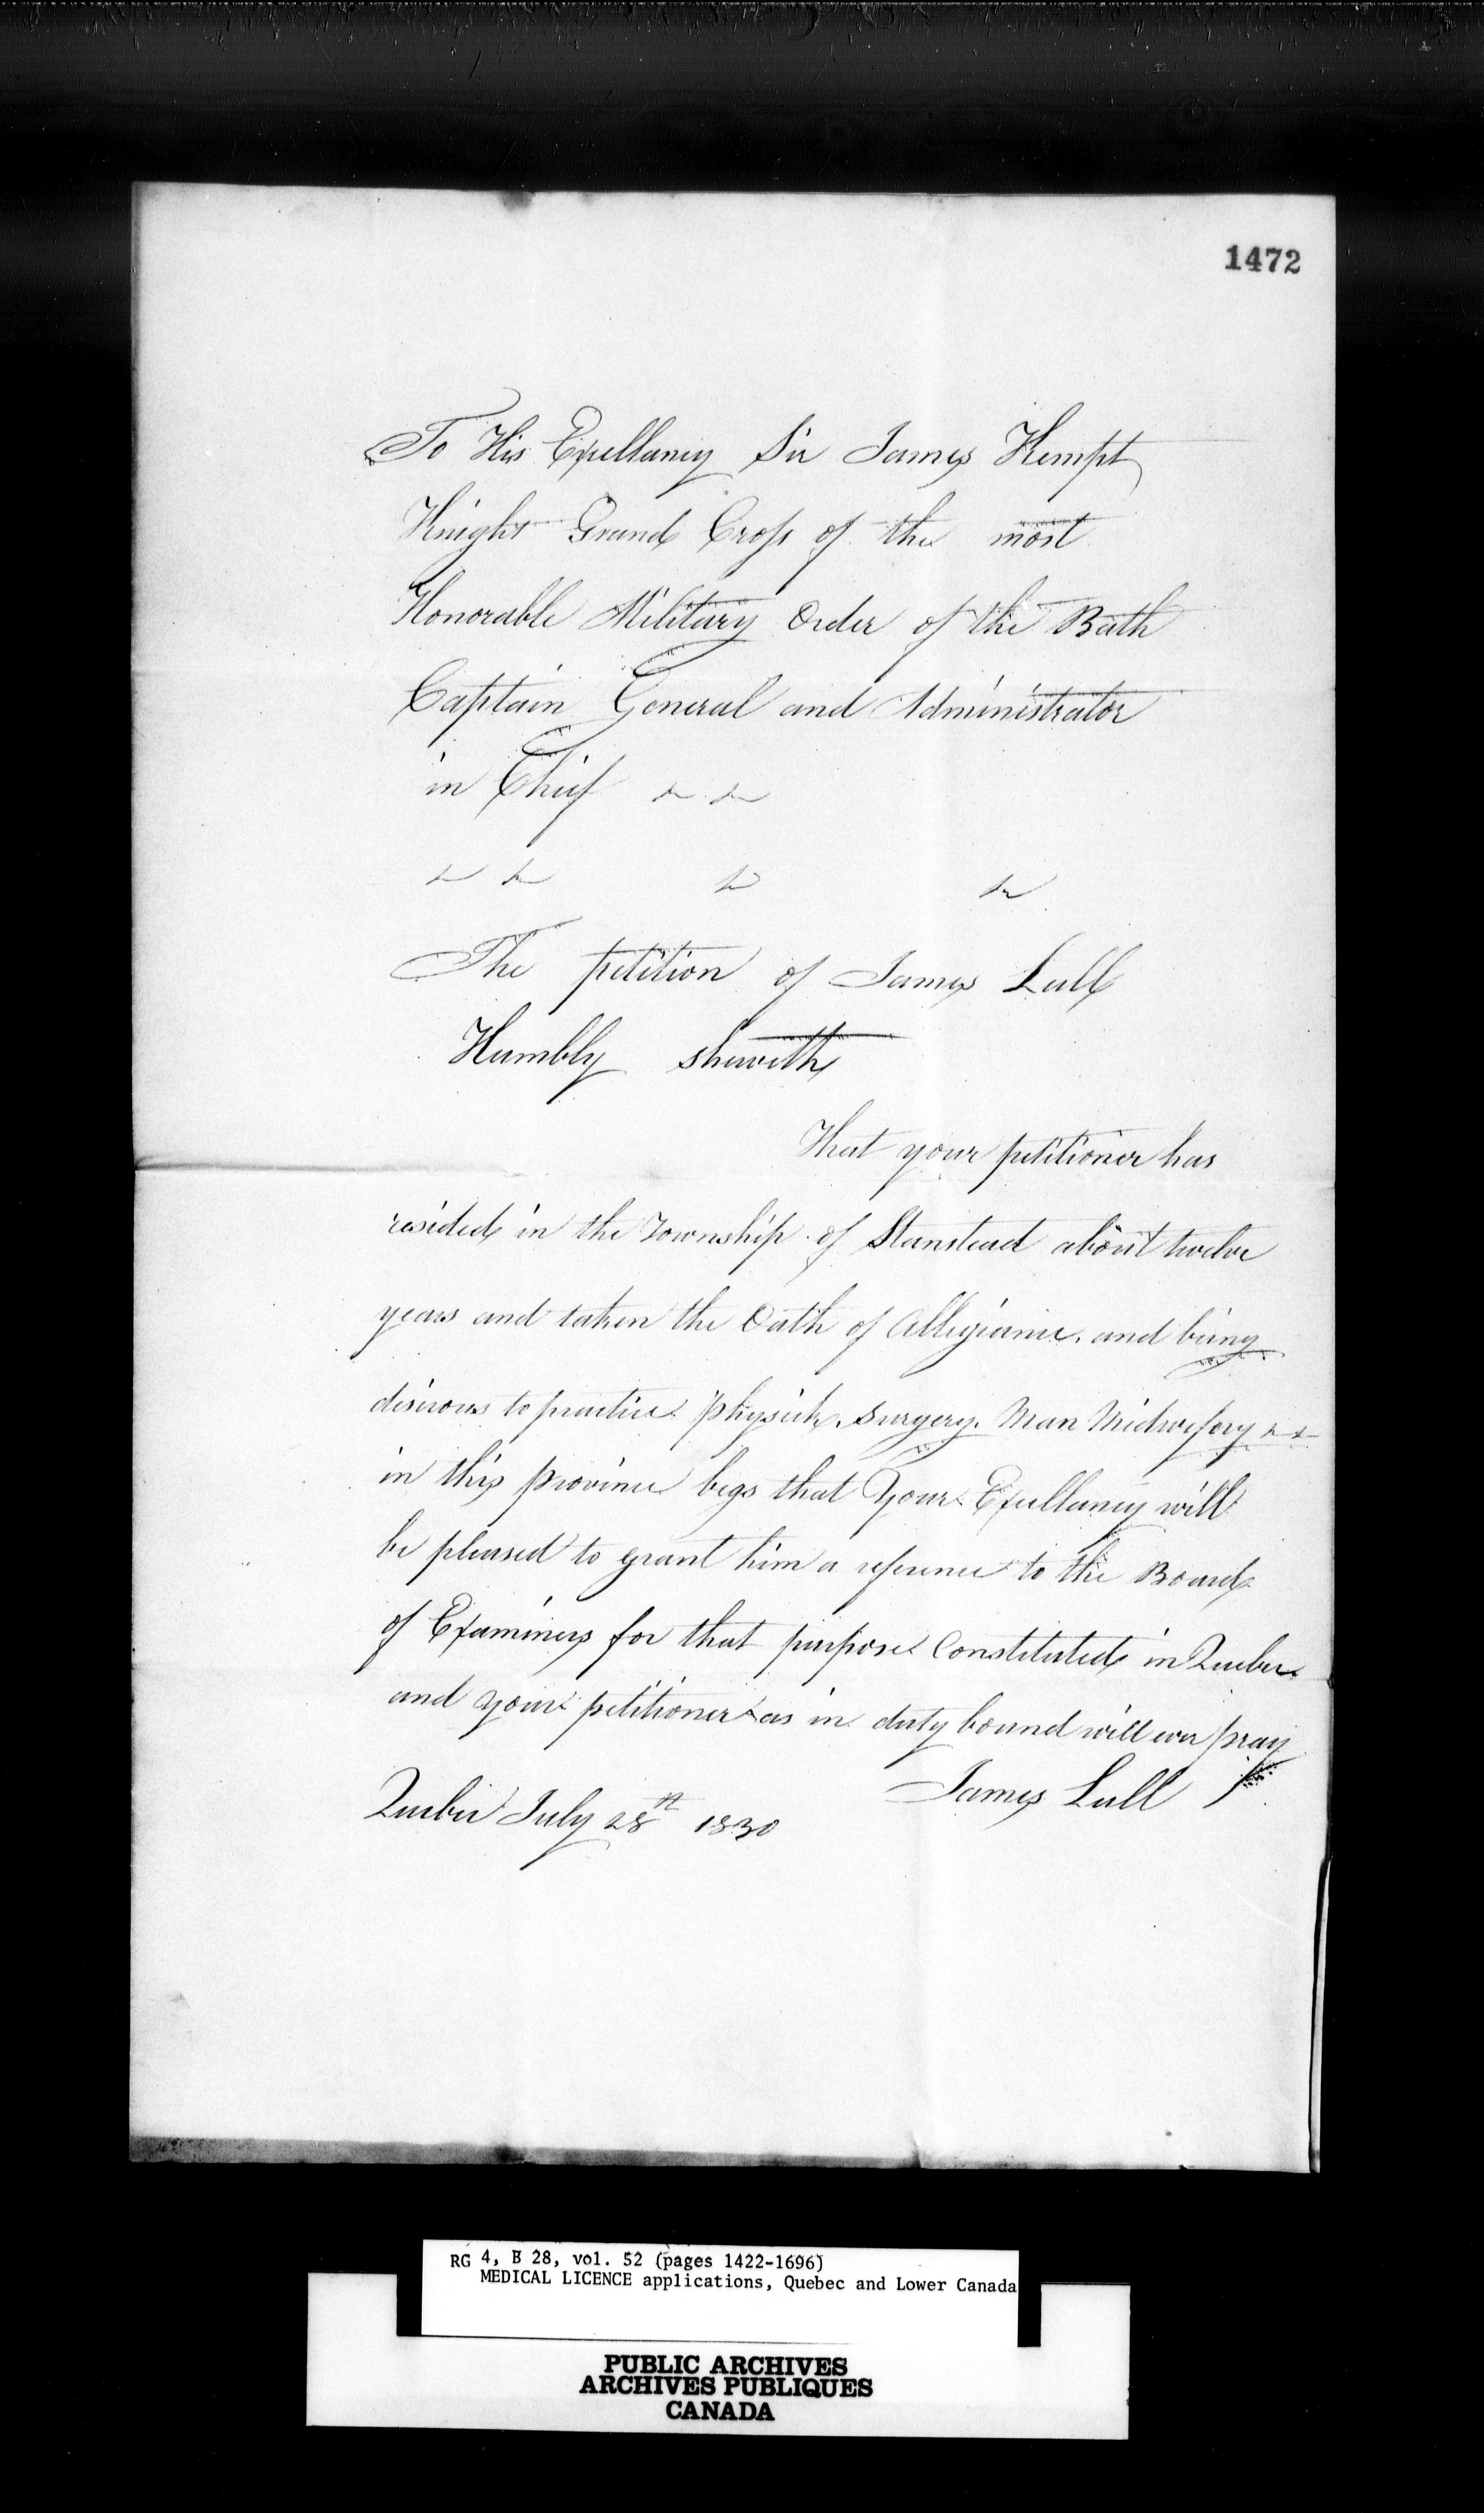 1472
To His Exellancy Sir James Kempt
Knight Grand Cross of the most
Honorable Military Order of the Bath
Captain General and Administrator
in Chief &c &c
&c &c &c &c
The petition of James Lull
Humbly sheweth
That your petitioner has
resided in the Township of Stanstead about twelve
years and taken the Oath of Allegiance. and being
desirous to practice physick. surgery. Man Midwifery &c
in this province begs that Your Exellancy will
be pleased to grant him a reference to the Board
of Examiners for that purpose Constituted in Quebec
and your petitioner as in duty bound will ever pray
James Lull
Quebec July 28th 1830
RG 4, B 28, vol. 52 (pages 1422-1696)
MEDICAL LICENCE applications, Quebec and Lower Canada
PUBLIC ARCHIVES
ARCHIVES PUBLIQUES
CANADA